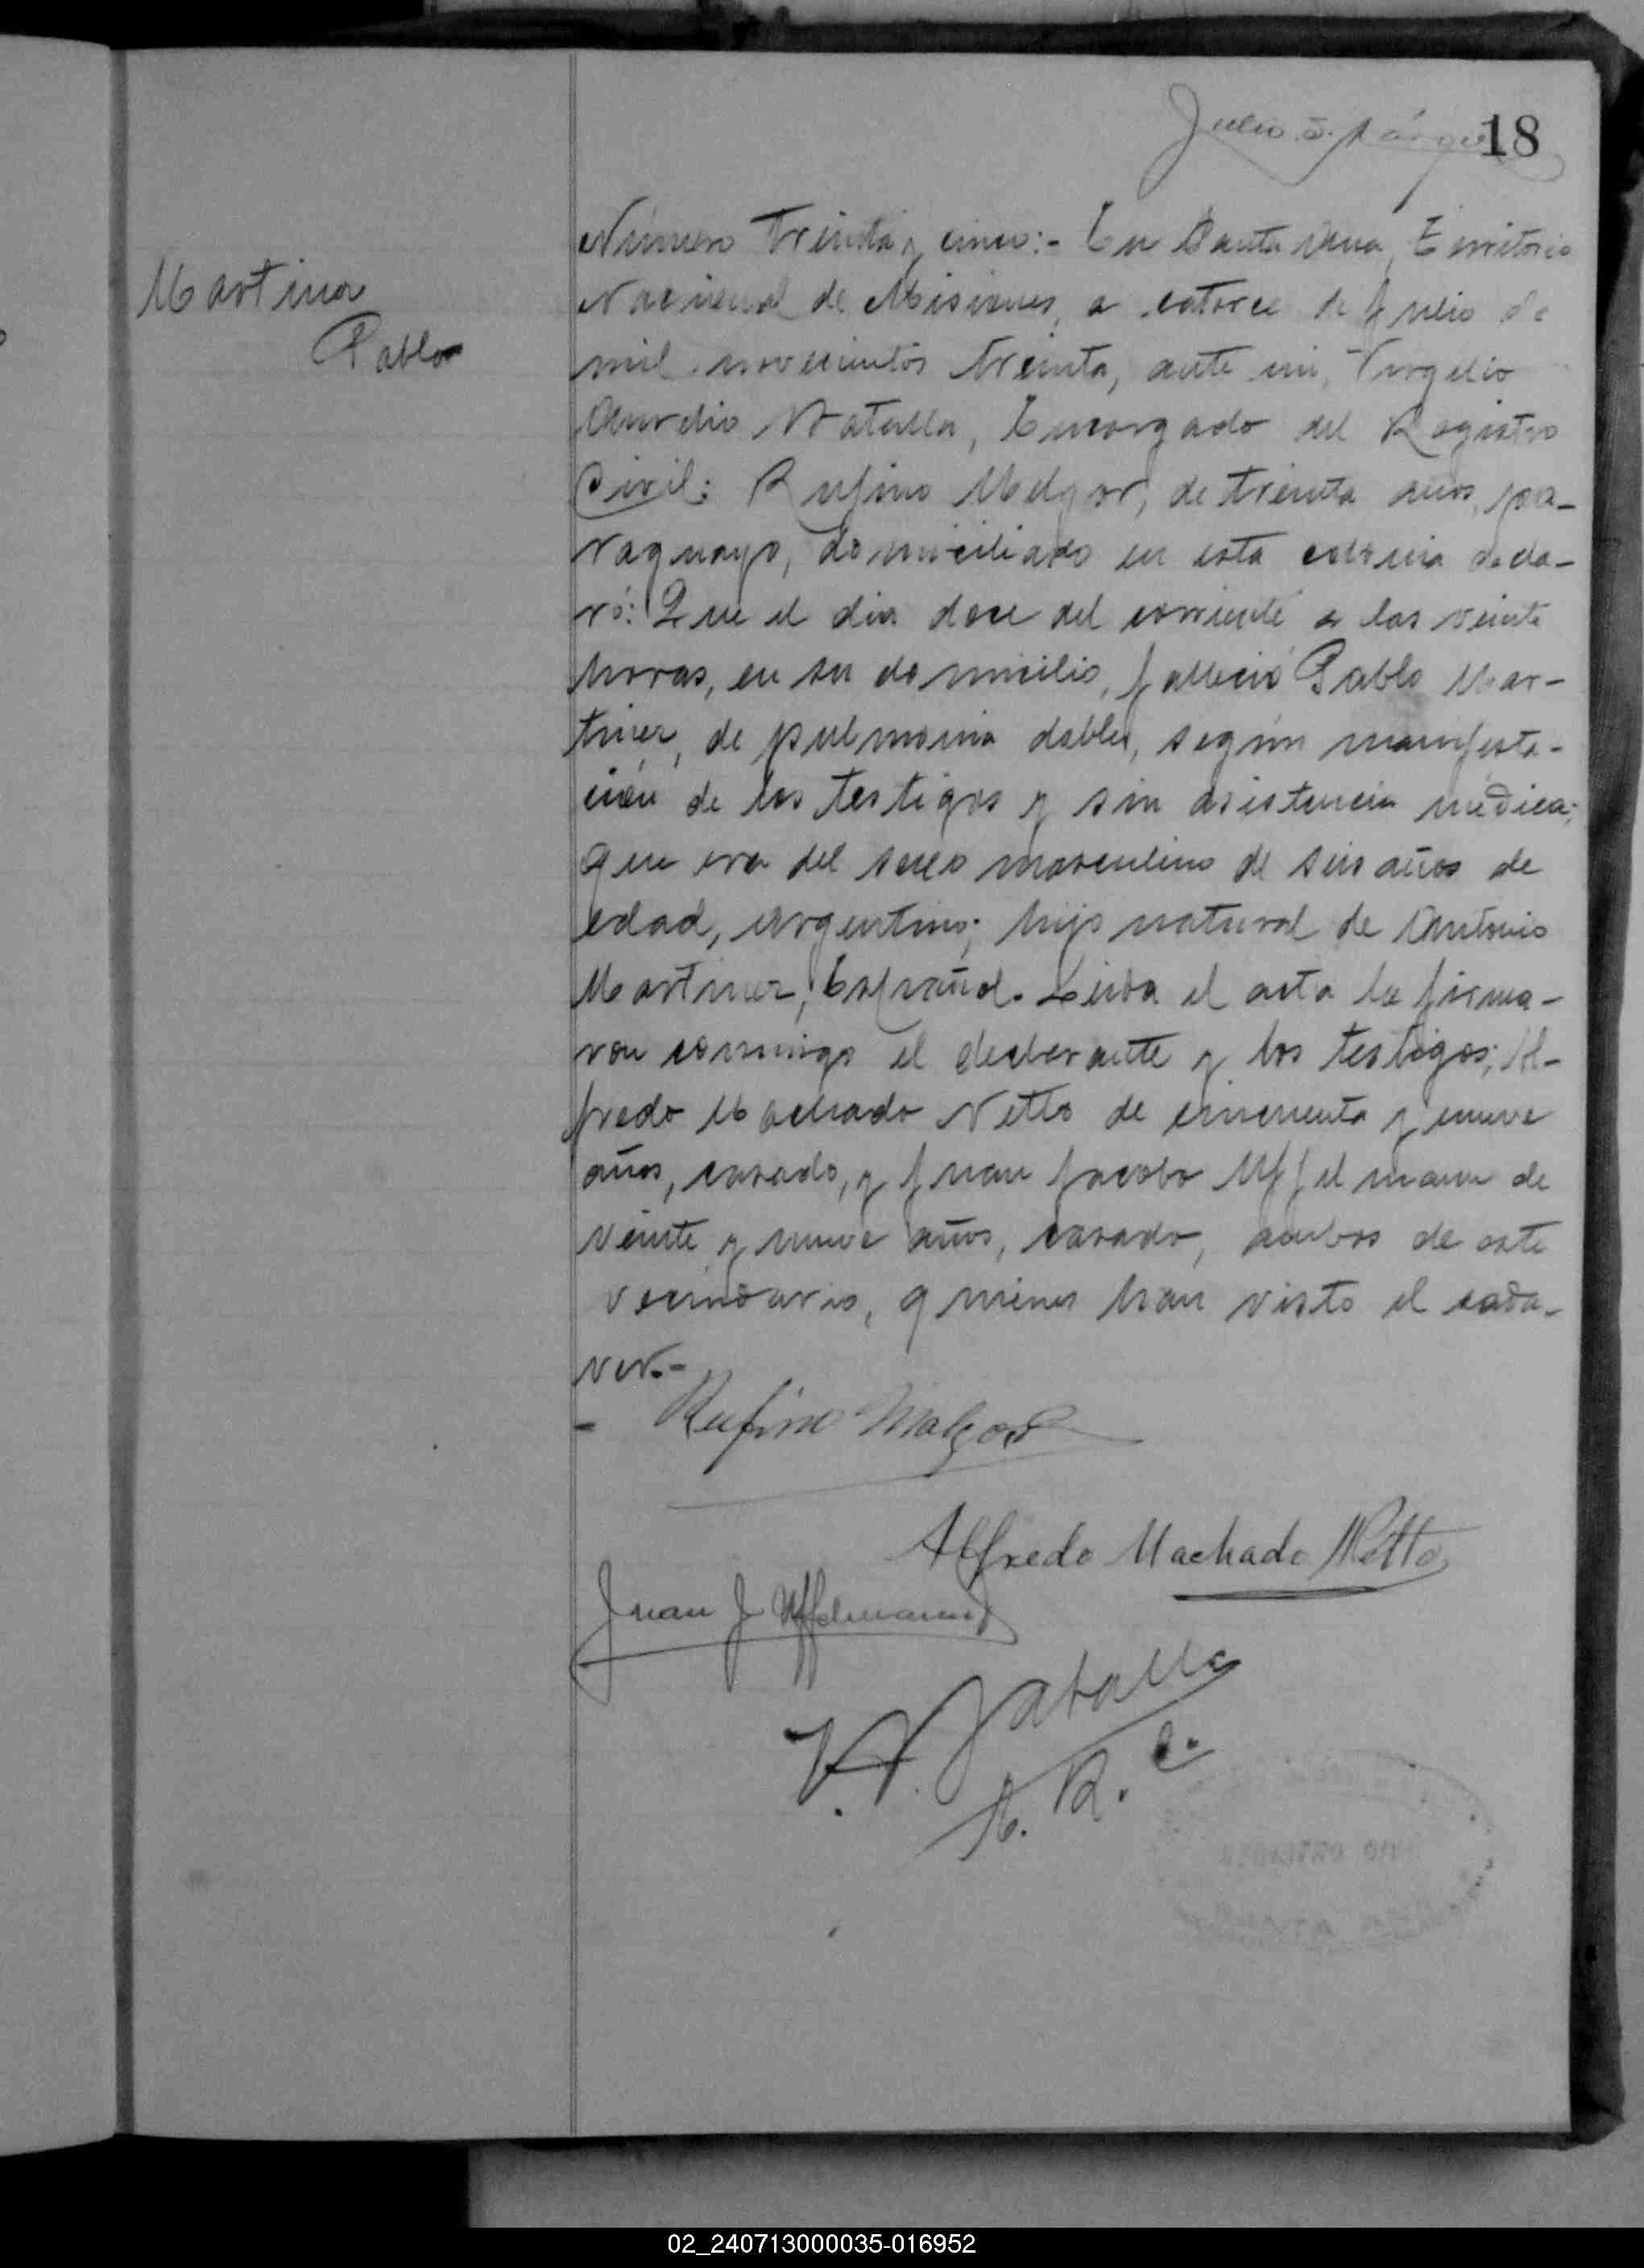 18
Martinez
Pablo
Número Treinta y cinco:- En Santa Ana, Territorio
Nacional de Misiones, a catorce de Julio de
mil novecientos treinta, ante mi, Virgilio
Aurelio Natalla, Encargado del Registro
Civil: Rufino Melgar, de treinta años, pa-
raguayo, domiciliado en esta colonia decla-
ró: Que el dia doce del corriente a las veinte
horas, en su domicilio, falleció Pablo Mar-
tinez, de pulmonia doble, según manifesta-
ción de los testigos y sin asistencia médica;
que era del sexo masculino de seis años de
edad, argentino; hijo natural de Antonio
Martinez, Español. Leida el acta la firma-
ron conmigo el declarante y los testigos; Al-
fredo Machado Netto de cincuenta y nueve
años, casado, y Juan Jacobo Uffelmann de
veinte y nueve años, casado, ambos de este
vecindario, quienes han visto el cada-
ver.-
- Rufino Melgar
Alfredo Machado Netto
Juan J Uffelmann
V. A. Natalla
E. R. C.
02_240713000035-016952